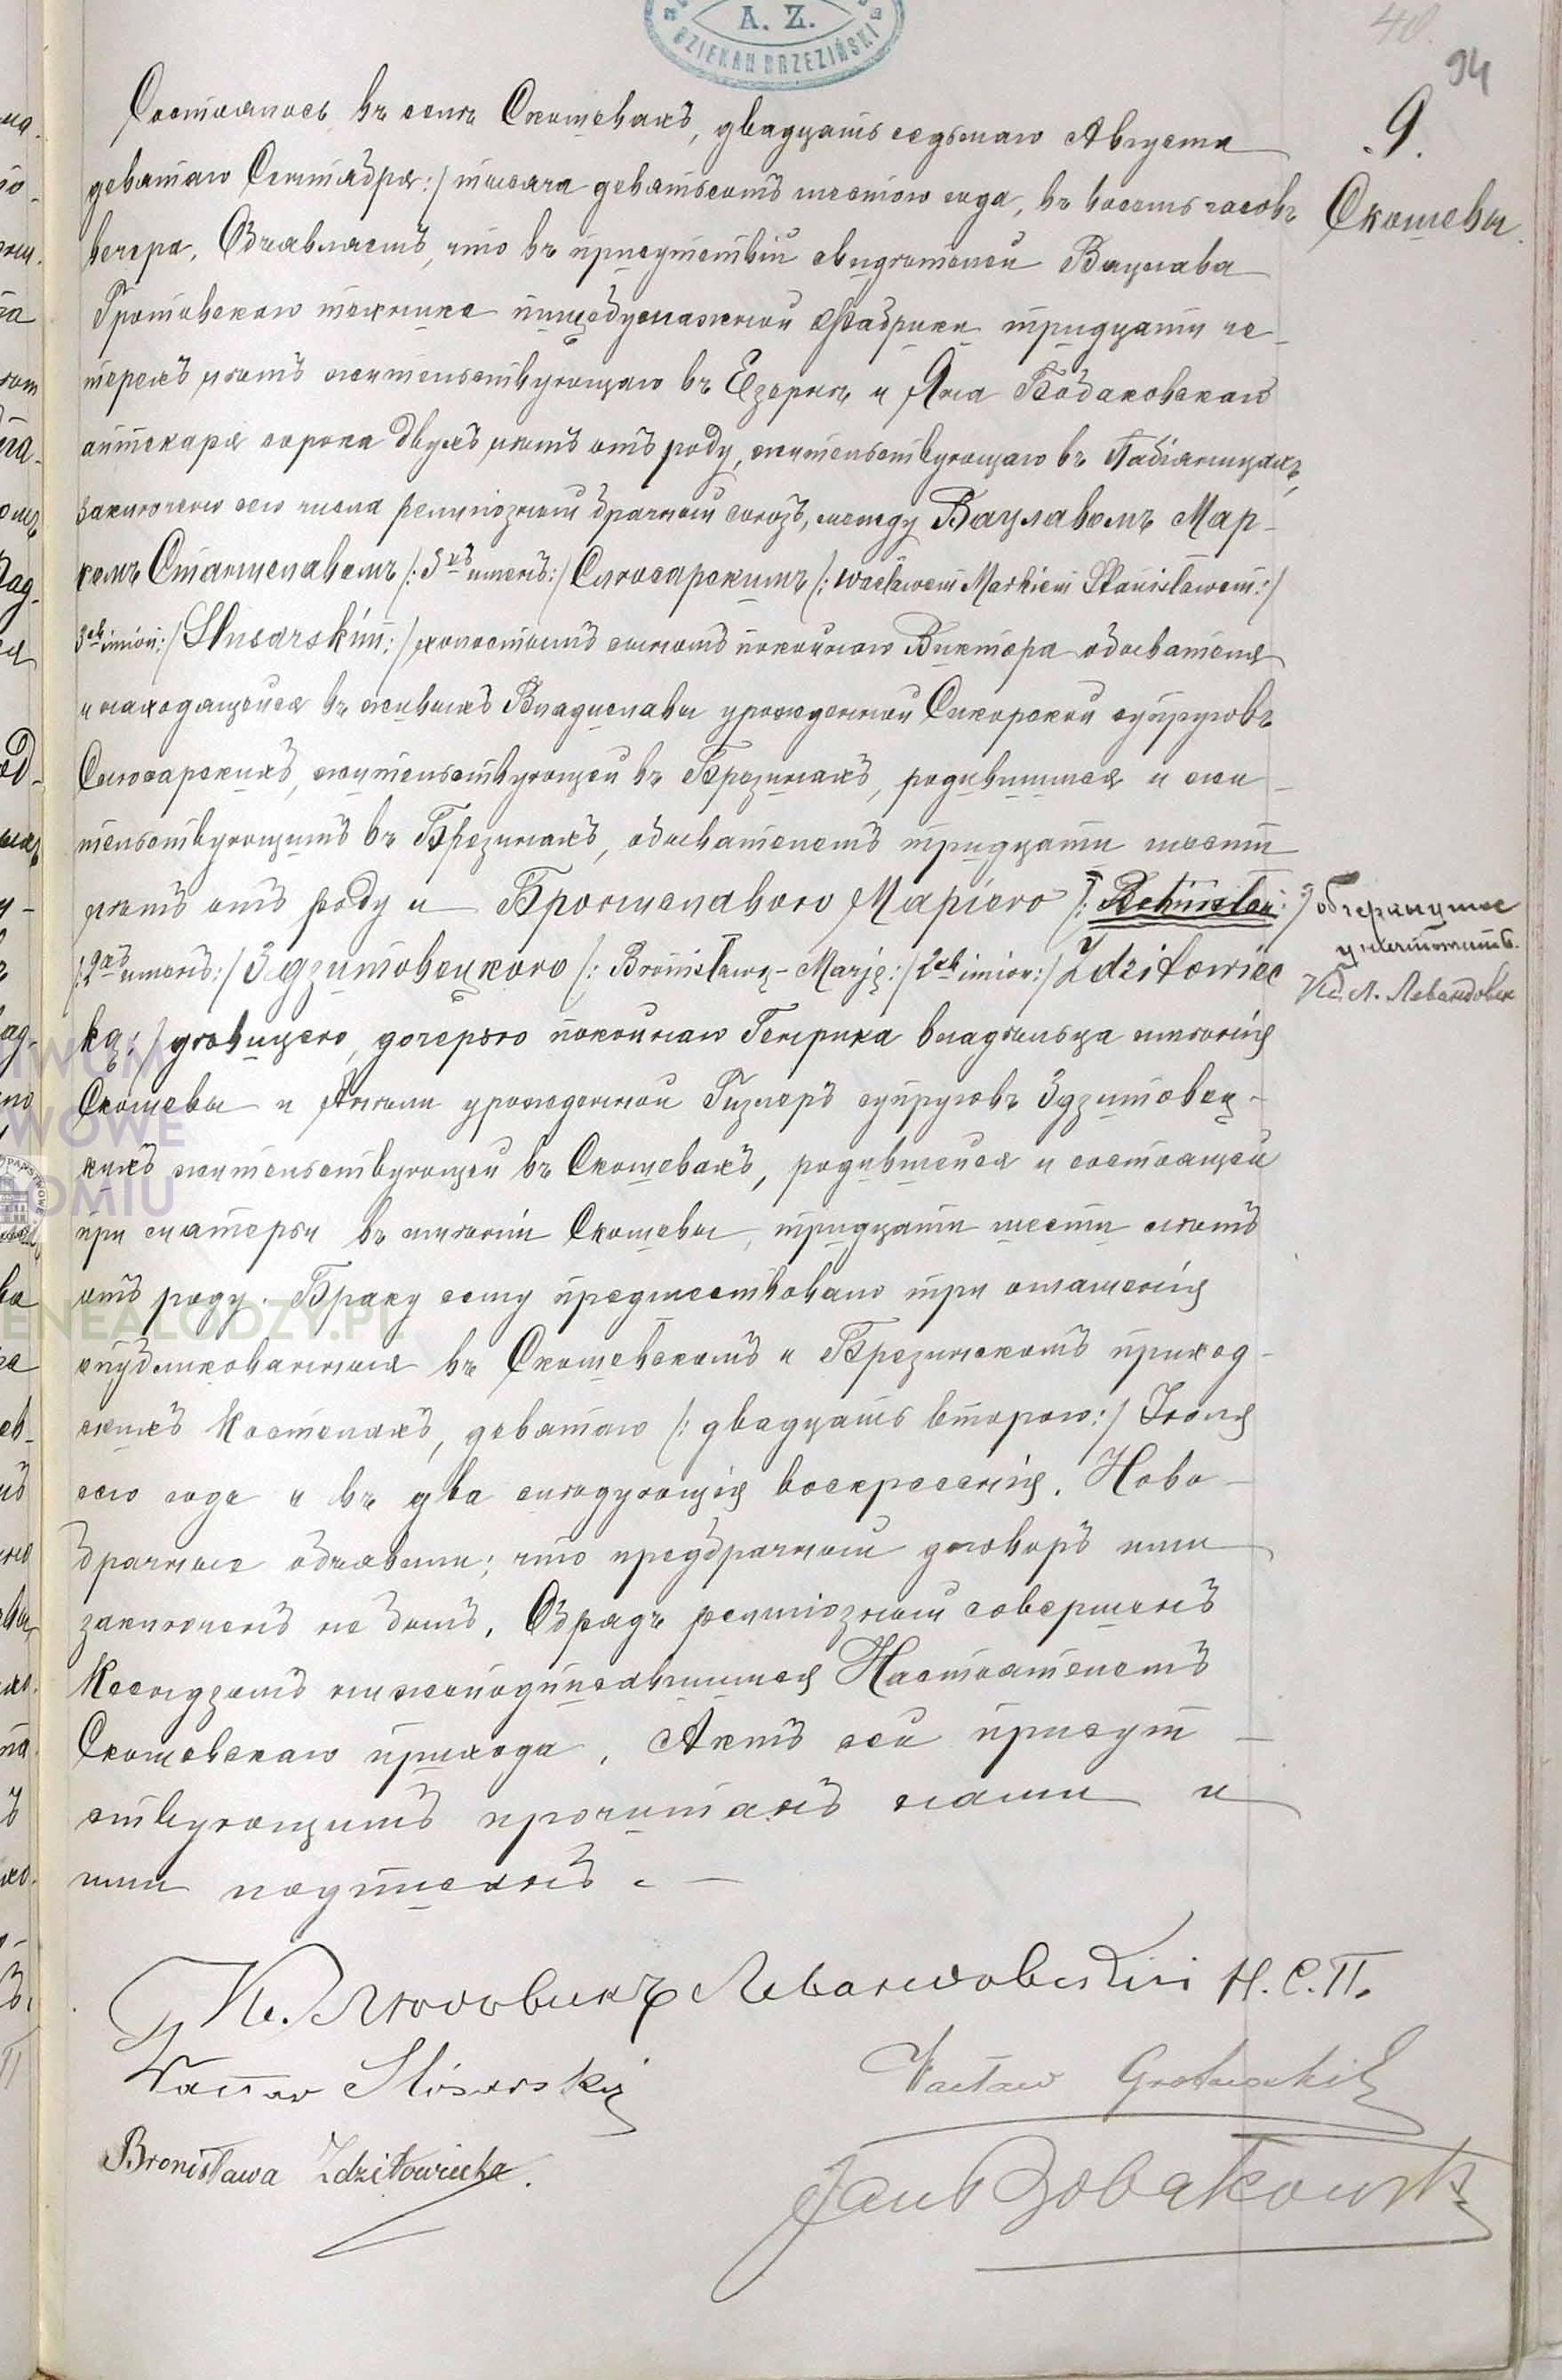 A. Z.
DZIEKAN BRZEZIŃSKI
40.
94
9.
Скошевы.
Состоялось въ селѣ Скошевахъ, двадцать седьмаго Августа
девятаго Сентября:/ тысяча девятьсотъ шестого года, въ восемь часовъ
вечера. Объявляетъ, что въ присутствіи свидѣтелей Вацлава
Гротовскаго техника пищебумажной фабрики тридцати че-
терехъ лѣтъ жительствующаго въ Езернѣ и Яна Бобаковскаго
аптекаря сорока двухъ лѣтъ отъ роду, жительствующаго въ Пабіяницахъ,
заключенъ сего числа религіозный брачный союзъ, между Вацлавомъ Мар-
комъ Станиславомъ /:3хъ именъ:/ Слюсарскимъ /: Wacławem Markiem Stanisławem:/
3ch imion:/ Slusarskim:/ холостымъ сыномъ покойнаго Виктора обывателя
и находящейся въ живыхъ Владиславы урожденной Сикорской супруговъ
Слюсарскихъ, жительствующей въ Брезинахъ, родившимся и жи-
тельствующимъ въ Брезинахъ, обывателемъ тридцати шести
лѣтъ отъ роду и Брониславою Маріею /:
/: 2хъ именъ:/ Здзитовецкою /: Bronisławą-Marją:/ 2ch imion:/ Zdzitowiec
ką:/ дѣвицею, дочерью покойнаго Генрика владѣльца имѣнія
Скошевы и Анны урожденной Гизлеръ супруговъ Здзитовец-
кихъ жительствующей въ Скошевахъ, родившейся и состоящей
при матери въ имѣніи Скошевы, тридцати шести лѣтъ
отъ роду. Браку сему предшествовало три оглашенія
опубликованныя въ Скошевскомъ и Брезинскомъ приход-
скихъ Костелахъ, девятаго /: двадцать второго:/ Іюля
сего года и въ два слѣдующія воскресенія. Ново-
брачные объявили; что предбрачный договоръ ими
заключенъ не былъ. Обрядъ религіозный совершенъ
Ксендзомъ нижеподписавшимся Настоятелемъ
Скошевскаго прихода. Актъ сей присут-
ствующимъ прочитанъ нами и
ими подписанъ. —
подчеркнутое
уничтожить.
Кс. Л. Левандовск
Кс. Людовикъ Левандовскій Н. С. П.
Wacław Slósarski
Wacław Grotowski
Bronisława Zdzitowiecka.
Jan Bobakowski
GENEALODZY.PL